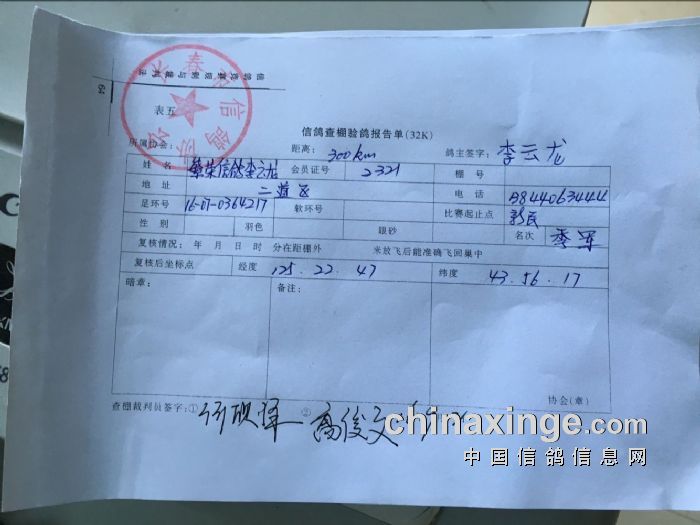 信鸽竞赛规则与裁判法
64
长春市信鸽协会
表五
信鸽查棚验鸽报告单(32K)
所属协会: 距离: 300km 鸽主签字: 李云龙
姓名 繁荣信鸽李云龙 会员证号 2321 棚号
地址 二道区 电话
足环号 16-07-0364217 软环号 比赛起止点 新民
性别 羽色 眼砂 名次 季军
复核情况: 年 月 日 时 分在距棚外 米放飞后能准确飞回巢中
复核后坐标点 经度 125.22.47 纬度 43.56.17
暗章: 备注:
协会(章)
查棚裁判员签字:① ② 高俊文
chinaxinge.com
中国信鸽信息网